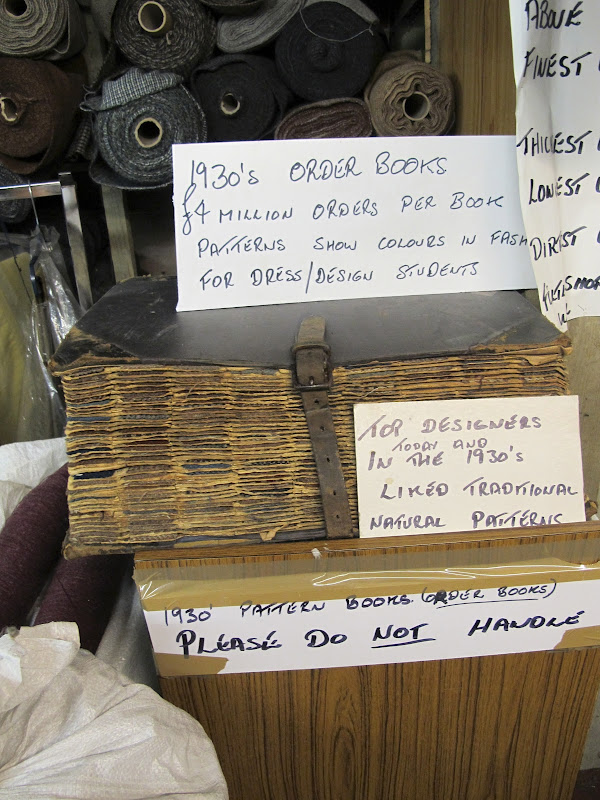 1930's ORDER BOOKS
£4 MILLION ORDERS PER BOOK
PATTERNS SHOW COLOURS IN FASH
FOR DRESS/DESIGN STUDENTS
ABOVE
FINEST
THICKEST
LOWEST
DIREST
TOP DESIGNERS
TODAY AND
IN THE 1930's
LIKED TRADITIONAL
NATURAL PATTERNS
1930' PATTERN BOOKS (ORDER BOOKS)
PLEASE DO NOT HANDLE